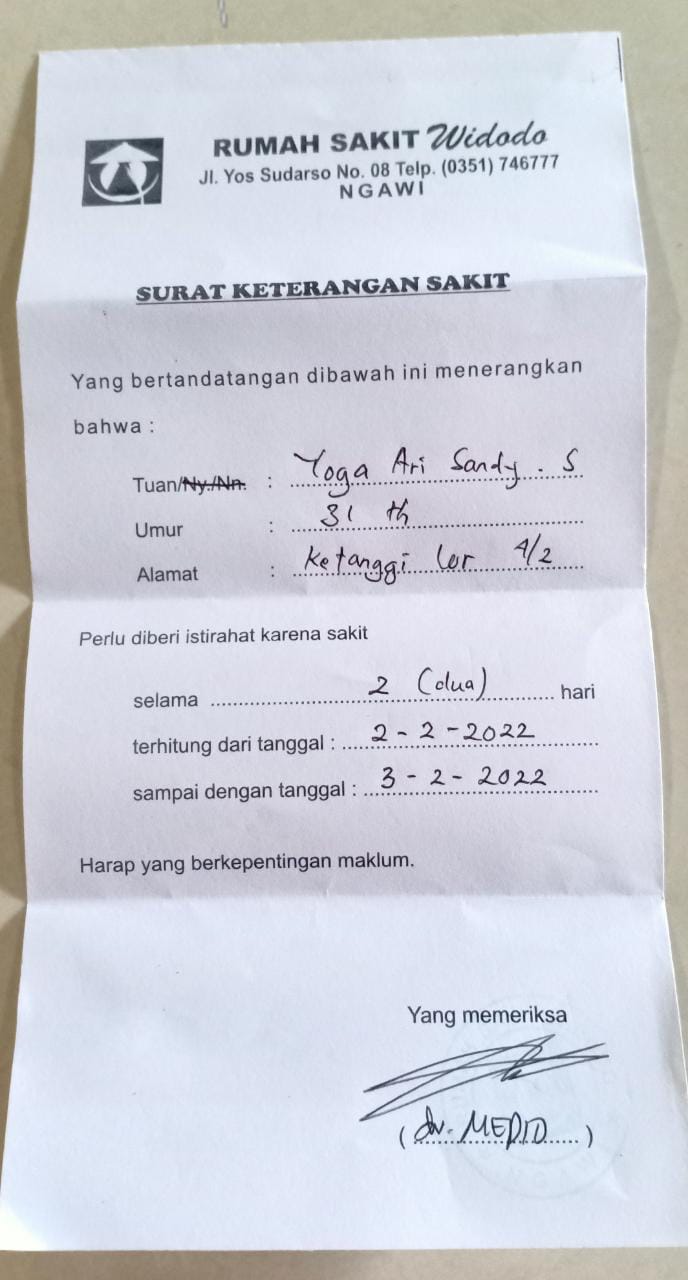 RUMAH SAKIT Widodo
Jl. Yos Sudarso No. 08 Telp. (0351) 746777
NGAWI
SURAT KETERANGAN SAKIT
Yang bertandatangan dibawah ini menerangkan
bahwa :
Tuan/Ny./Nn. : Yoga Ari Sandy . S
Umur : 31 th
Alamat : Ketanggi lor 4/2
Perlu diberi istirahat karena sakit
selama 2 (dua) hari
terhitung dari tanggal : 2 - 2 - 2022
sampai dengan tanggal : 3 - 2 - 2022
Harap yang berkepentingan maklum.
Yang memeriksa
( dr. )